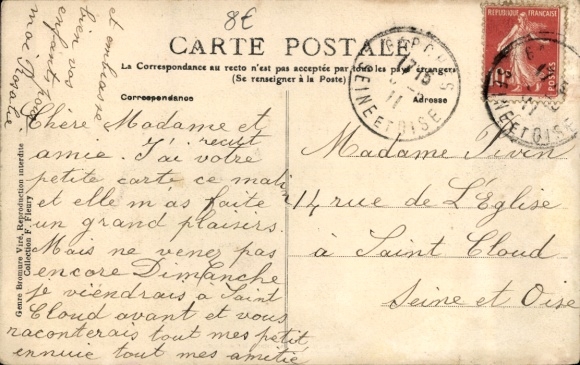 8€
CARTE POSTALE
La Correspondance au recto n'est pas acceptée par tous les pays étrangers
(Se renseigner à la Poste)
Correspondance
Adresse
RÉPUBLIQUE FRANÇAISE
SEINE ET OISE
SEINE ET OISE
Chère Madame et
amie. J'ai recut votre
petite carte ce matin
et elle m'as faite
un grand plaisirs.
Mais ne venez pas
encore Dimanche
je viendrais a Saint
Cloud avant et vous
raconterais tout mes petit
ennuie tout mes amitié
et embrasse
bien vos
enfants pour
moi Rosalie
Madame Pivin
14 rue de L'Église
à Saint Cloud
Seine et Oise
Genre Bromure Viré, Reproduction interdite
Collection F. Fleury